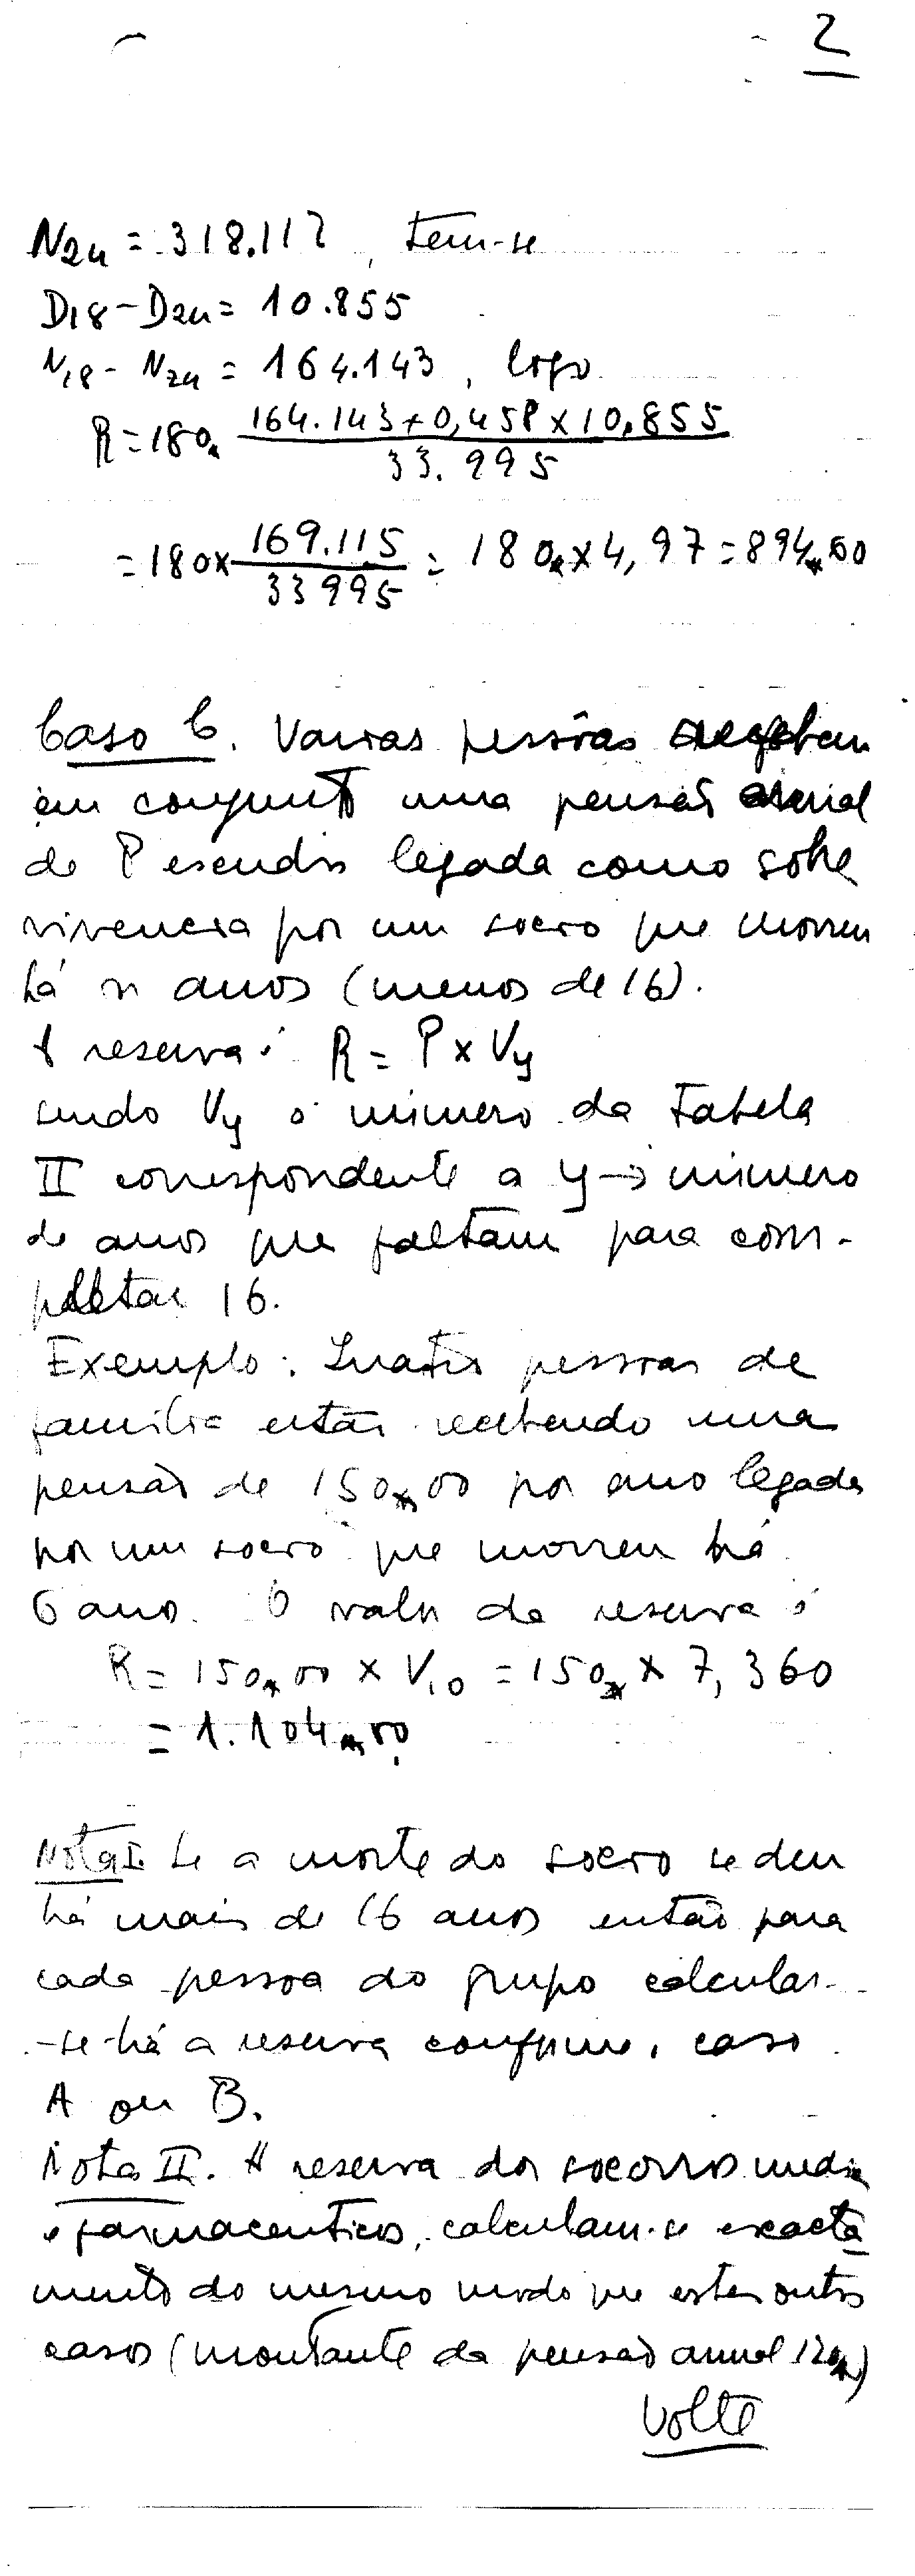 2
N24 = 318.112, tem-se
D18 - D24 = 10.855
N18 - N24 = 164.143, logo
R = 180$ 164.143 + 0,458 x 10.855 / 33.995
= 180 x 169.115 / 33995 = 180$ x 4,97 = 894$60
Caso C. Varias pessôas recebem
em conjunto uma pensão anual
de P escudos legada como sobre
vivencia por um socio que morreu
há n anos (menos de 16).
A reserva é R = P x Vy
sendo Vy o numero da Tabela
II correspondente a y → numero
de anos que faltam para com-
pletar 16.
Exemplo: Quatro pessoas de
familia estão recebendo uma
pensão de 150$00 por ano legada
por um socio que morreu há
6 anos. O valor da reserva é
R = 150$00 x V10 = 150$ x 7,360
= 1.104$00
Nota I. Se a morte do socio se deu
há mais de 16 anos então para
cada pessoa do grupo calcular-
-se-há a reserva conforme o caso
A ou B.
Nota II. A reserva dos socorros medic
e farmaceuticos, calculam-se exacta
mente do mesmo modo que estes outros
casos (montante da pensão anual 12$)
Volte